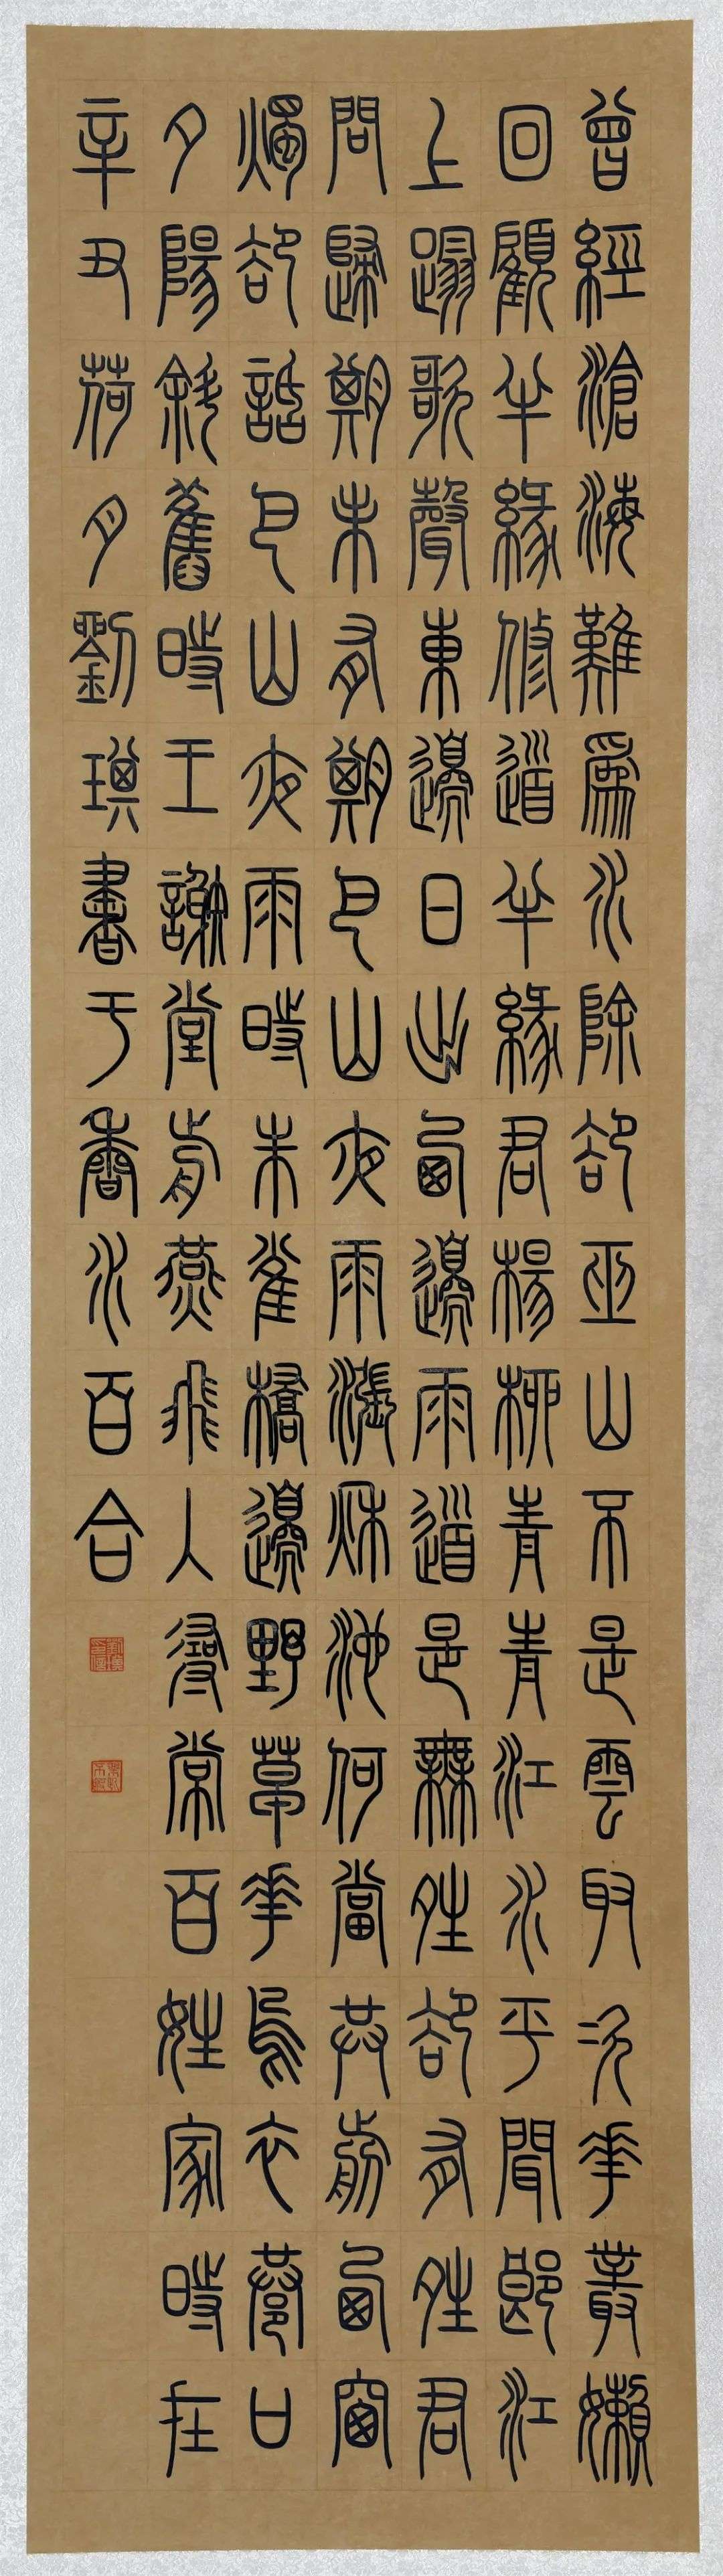 曾經滄海難爲水除卻巫山不是雲取次華叢懶
回顧半緣修道半緣君楊柳青青江水平聞郎江
上蹋歌聲東邊日出西邊雨道是無晴卻有晴君
問歸期未有期巴山夜雨漲秋池何當共剪西窗
燭卻話巴山夜雨時朱雀橋邊野草華烏衣巷口
夕陽斜舊時王謝堂前燕飛入尋常百姓家時在
辛丑荷月劉書于香水百合